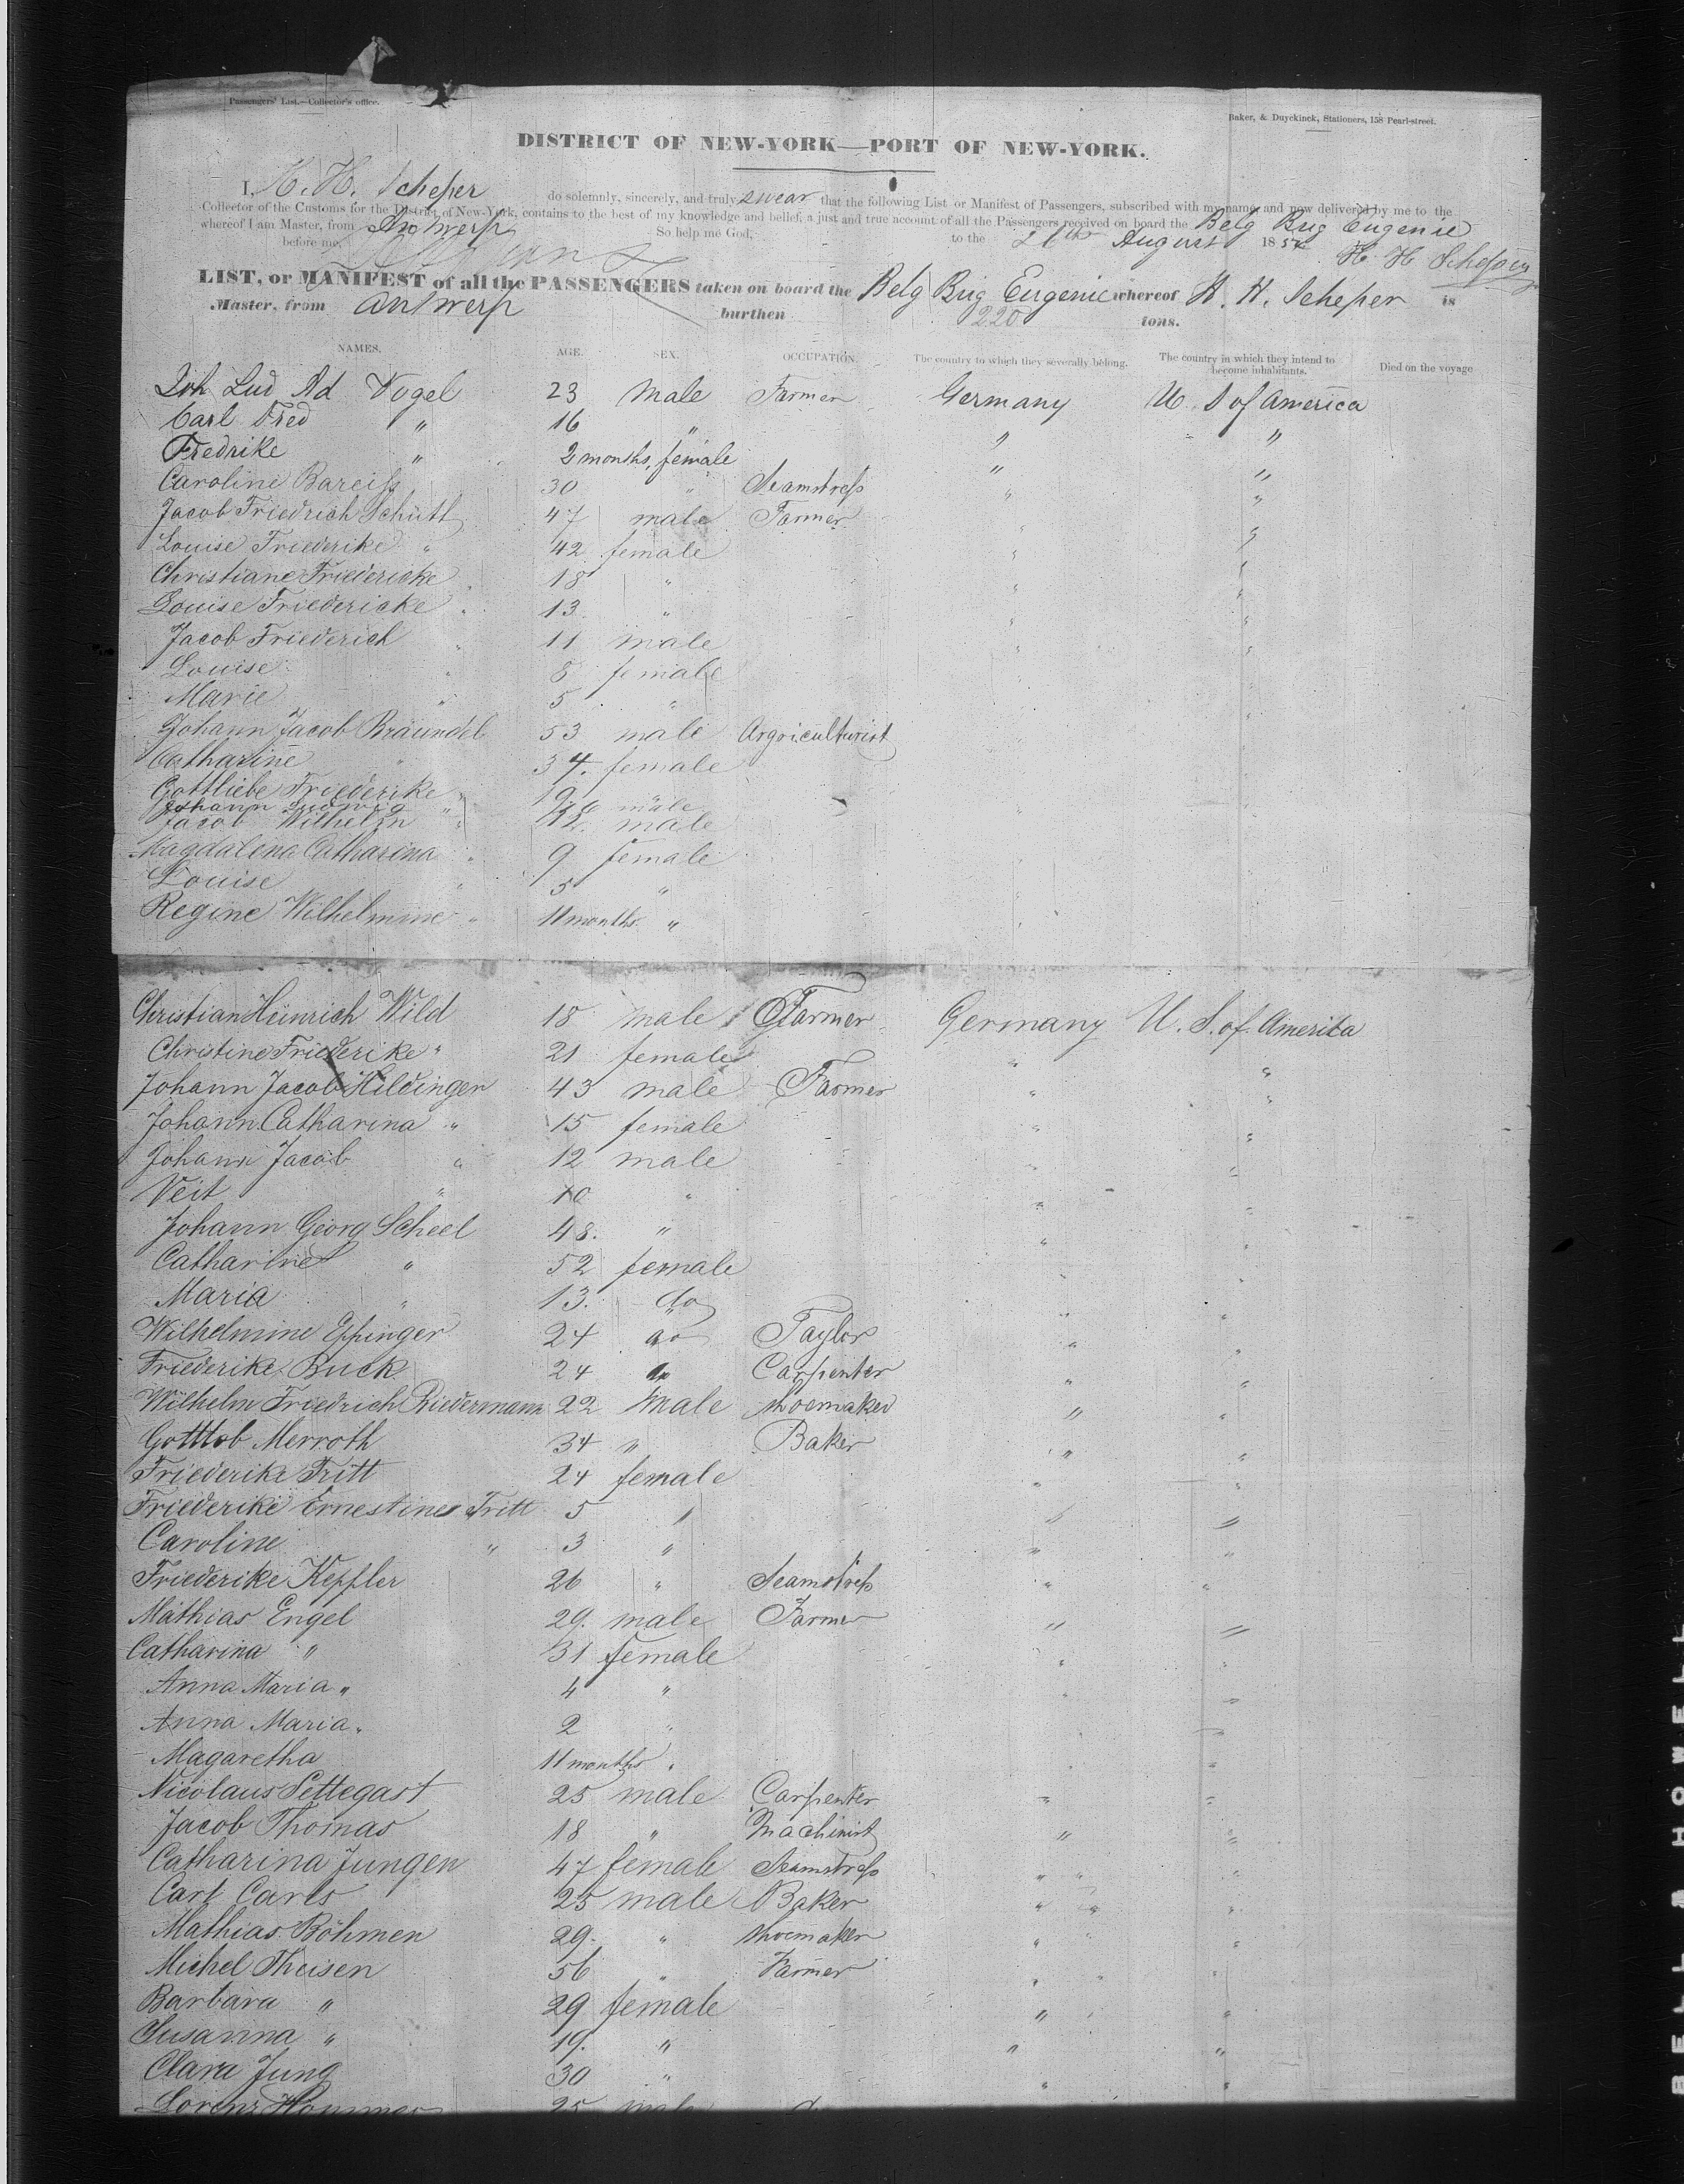 Passengers' List.—Collector's office.
Baker, & Duyckinck, Stationers, 158 Pearl-street.
DISTRICT OF NEW-YORK—PORT OF NEW-YORK.
I, H. H. Scheper do solemnly, sincerely, and truly swear that the following List or Manifest of Passengers, subscribed with my name, and now delivered by me to the
Collector of the Customs for the District of New-York, contains to the best of my knowledge and belief, a just and true account of all the Passengers received on board the Belg Brig Eugenie
whereof I am Master, from Antwerp So help me God,
before me, to the August 185 H H Scheper
LIST, or MANIFEST of all the PASSENGERS taken on board the Belg Brig Eugenie whereof H. H. Scheper is
Master, from Antwerp burthen 220 tons.
NAMES. AGE. SEX. OCCUPATION. The country to which they severally belong. The country in which they intend to become inhabitants. Died on the voyage
Joh Lud Ad Vogel 23 Male Farmer Germany U. S of America
Carl Fred " 16 " " "
Fredrike " 2 months, female " "
Caroline Bareiss 30 " Seamstress " "
Jacob Friedrich Schütt 47 male Farmer " "
Louise Friederike " 42 female " "
Christiane Friedericke " 18 " " "
Louise Friedericke " 13 " " "
Jacob Friederich " 11 male " "
Louise " 8 female " "
Marie " 5 " " "
Johann Jacob Bräundel 53 male Argriculturist " "
Catharine " 34. female
Gottliebe Friederike " 19 "
Johann Ludwig " male
Jacob Wilhelm " 12. male
Magdalena Catharina " 9 female
Louise " 5 "
Regine Wilhelmine " 11 months "
Christian Heinrich Wild 18 male Farmer Germany U. S. of America
Christine Friederike " 21 female " "
Johann Jacob Hildinger 43 male Farmer " "
Johann Catharina " 15 female " "
Johann Jacob " 12 male " "
Veit " 10 " " "
Johann Georg Scheel 48. " " "
Catharine " 52 female " "
Maria " 13. do " "
Wilhelmine Eppinger 24 do Taylor " "
Friederike Buck 24 do Carpenter " "
Wilhelm Friedrich Riedermann 22 male shoemaker " "
Gottlob Merroth 34 " Baker " "
Friederike Tritt 24 female " "
Friederike Ernestine Tritt 5 " " "
Caroline " 3 " " "
Friederike Keppler 26 " Seamstress " "
Mathias Engel 29. male Farmer " "
Catharina " 31 female " "
Anna Maria " 4 " " "
Anna Maria " 2 " " "
Magaretha 11 months " " "
Nicolaus Settegast 25 male Carpenter " "
Jacob Thomas 18 " Machinist " "
Catharina Jungen 47 female Seamstress " "
Carl Carls 25 male Baker " "
Mathias Böhmen 29. " shoemaker " "
Michel Theisen 56 " Farmer " "
Barbara " 29 female " "
Susanna " 19. " " "
Clara Jung 30 " " "
Lorenz 25 male
BELL & HOWELL